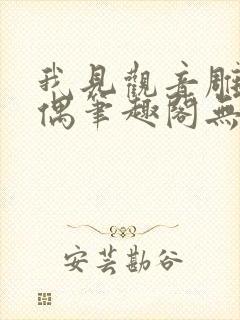 我見觀音雕
偶筆趣閣無
安芸勘谷